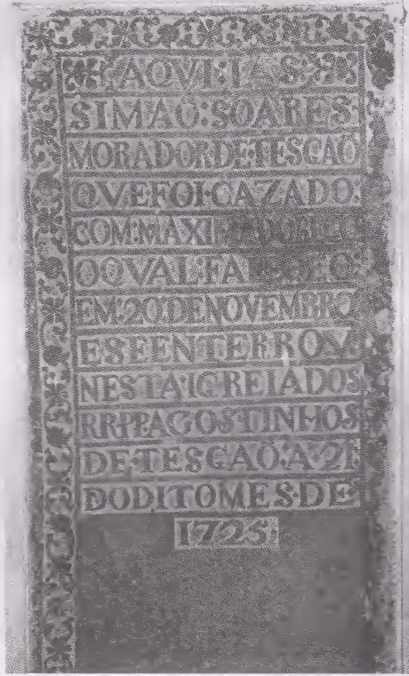 AQVI:IAS
SIMAÕ:SOARES
MORADOR·DE·TESGAÕ
QVE·FOI·CAZADO:
COM:MAXIMA
O·QVAL:FALECEO:
EM:20:DE·NOVEMBRO
E·SE·ENTERROV
NESTA·IGREIA·DOS
RR·PP·AGOSTINHOS
DE·TESGAO:A·21
DO·DITO·MES·DE
1725